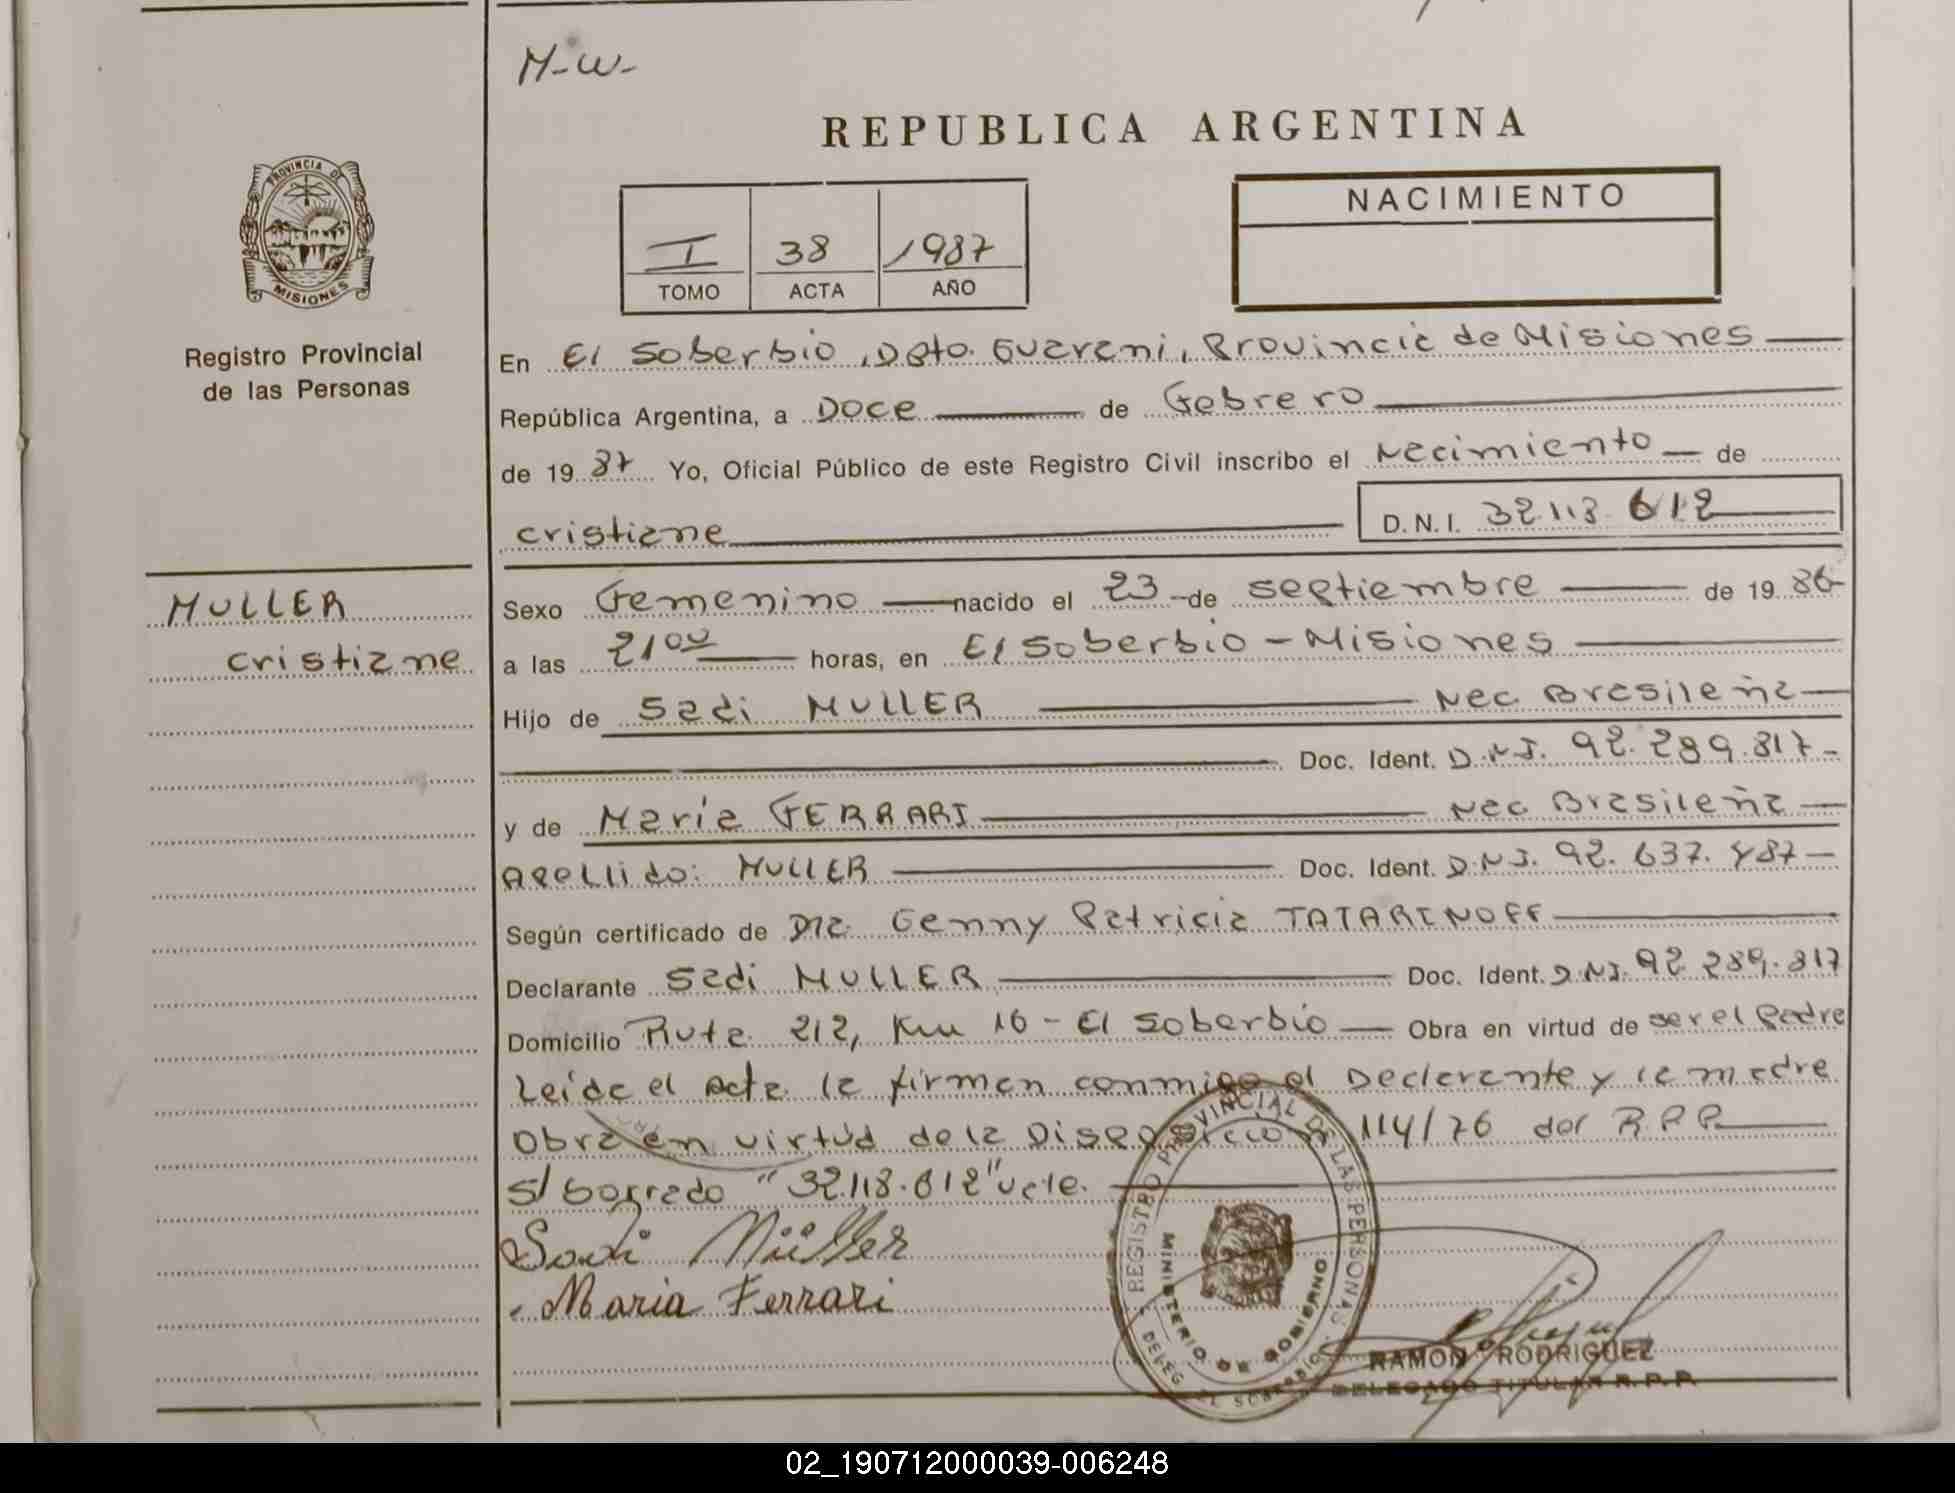 M-W-
REPUBLICA ARGENTINA
PROVINCIA DE
MISIONES
Registro Provincial
de las Personas
I 38 1987
TOMO ACTA AÑO
NACIMIENTO
En El Soberbio, Dpto. Guarani, Provincia de Misiones
República Argentina, a Doce de Febrero
de 19 87 Yo, Oficial Público de este Registro Civil inscribo el Nacimiento de
cristiane D.N.I. 32.113.612
MULLER
cristiane
Sexo Femenino nacido el 23 de septiembre de 19 86
a las 21 00 horas, en El Soberbio - Misiones
Hijo de Sadi MULLER Nac Brasileña
Doc. Ident. D.N.I. 92.289.817-
y de Maria FERRARI Nac Brasileña
Apellido: MULLER Doc. Ident. D.N.I. 92.637.487
Según certificado de Dra. Genny Patricia TATARINOFF
Declarante Sadi MULLER Doc. Ident. D.N.I. 92.289.817
Domicilio Ruta 212, Km 16 - El Soberbio Obra en virtud de ser el Padre
Leída el Acta la firman conmigo el Declarante y la madre
Obra en virtud de la Disposición 114/76 del R.P.P.
s/ borrado "32.113.612" vale.
Sadi Müller
Maria Ferrari
REGISTRO PROVINCIAL DE LAS PERSONAS
MINISTERIO DE GOBIERNO
DELEG. EL SOBERBIO
RAMON RODRIGUEZ
DELEGADO TITULAR R.P.P.
02_190712000039-006248